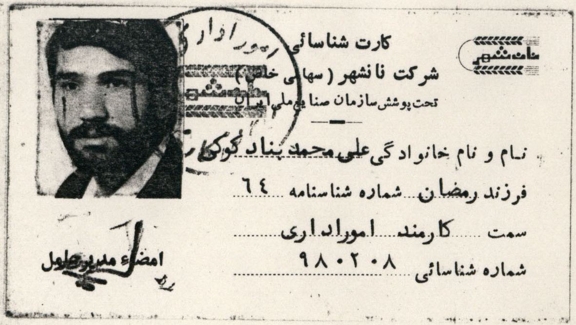 کارت شناسائی
شرکت نانشهر (سهامی خاص)
تحت پوشش سازمان صنایع ملی ایران
نانشهر
امور اداری
نام و نام خانوادگی علی محمد پناد کوکی
فرزند رمضان شماره شناسنامه ٦٤
سمت کارمند امور اداری
شماره شناسائی ٩٨٠٢٠٨
امضاء مدیر عامل